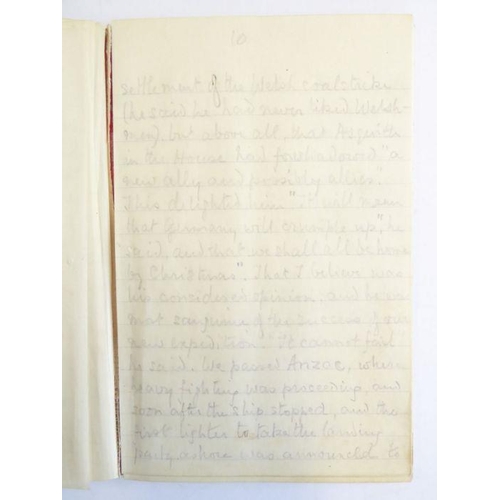 10
settlement of the Welsh coal strike
(he said he had never liked Welsh-
men), but above all, that Asquith
in the House had foreshadowed "a
new ally and possibly allies".
This delighted him "It will mean
that Germany will crumple up," he
said, and that we shall all be home
by Christmas". That I believe was
his considered opinion, and he was
most sanguine of the success of our
new expedition. "It cannot fail"
he said. We passed Anzac, where
heavy fighting was proceeding, and
soon after the ship stopped, and the
first lighter to take the landing
party ashore was announced to